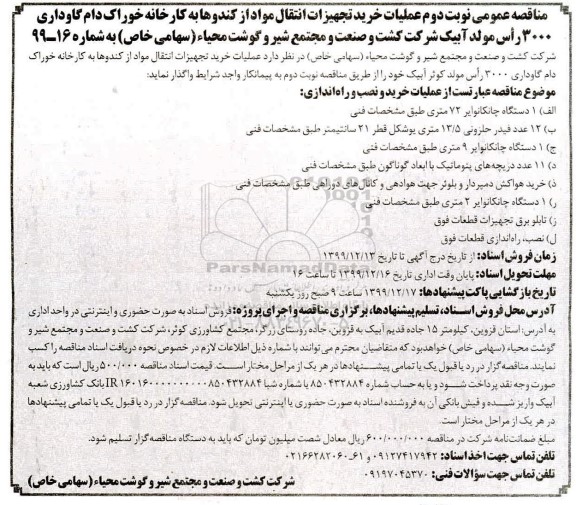 مناقصه عمومی نوبت دوم عملیات خرید تجهیزات انتقال مواد از کندوها به کارخانه خوراک دام گاوداری
۳۰۰۰ رأس مولد آبیک شرکت کشت و صنعت و مجتمع شیر و گوشت محیاء (سهامی خاص) به شماره ۱۶-۹۹
شرکت کشت و صنعت و مجتمع شیر و گوشت محیاء (سهامی خاص) در نظر دارد عملیات خرید تجهیزات انتقال مواد از کندوها به کارخانه خوراک
دام گاوداری ۳۰۰۰ رأس مولد کوثر آبیک خود را از طریق مناقصه نوبت دوم به پیمانکار واجد شرایط واگذار نماید:
موضوع مناقصه عبارتست از عملیات خرید و نصب و راه‌اندازی:
الف) ۱ دستگاه چانکانوایر ۷۲ متری طبق مشخصات فنی
ب) ۱۲ عدد فیدر حلزونی ۱۳/۵ متری یوشکل قطر ۲۱ سانتیمتر طبق مشخصات فنی
ج) ۱ دستگاه چانکانوایر ۹ متری طبق مشخصات فنی
د) ۱۱ عدد دریچه‌های پنوماتیک با ابعاد گوناگون طبق مشخصات فنی
ذ) خرید هواکش دمپردار و بلوئر جهت هوادهی و کانال‌های دوراهی طبق مشخصات فنی
ر) ۱ دستگاه چانکانوایر ۲ متری طبق مشخصات فنی
ز) تابلو برق تجهیزات قطعات فوق
ل) نصب، راه‌اندازی قطعات فوق
زمان فروش اسناد: از تاریخ درج آگهی تا تاریخ ۱۳۹۹/۱۲/۱۲
مهلت تحویل اسناد: پایان وقت اداری تاریخ ۱۳۹۹/۱۲/۱۶ تا ساعت ۱۶
تاریخ بازگشایی پاکت پیشنهادها: ۱۳۹۹/۱۲/۱۷ ساعت ۹ صبح روز یکشنبه
آدرس محل فروش اسناد، تسلیم پیشنهادها، برگزاری مناقصه و اجرای پروژه: فروش اسناد به صورت حضوری و اینترنتی در واحد اداری
به آدرس: استان قزوین، کیلومتر ۱۵ جاده قدیم آبیک به قزوین، جاده روستای زرگر، مجتمع کشاورزی کوثر، شرکت کشت و صنعت و مجتمع شیر و
گوشت محیاء (سهامی خاص) خواهد بود که متقاضیان محترم می‌توانند با شماره ذیل اطلاعات لازم در خصوص نحوه دریافت اسناد مناقصه را کسب
نمایند. مناقصه‌گزار در رد یا قبول یک یا تمامی پیشنهادها در هر یک از مراحل مختار است. قیمت اسناد مناقصه ۵۰۰/۰۰۰ ریال است که باید به
صورت وجه نقد پرداخت شود و یا به حساب شماره ۸۵۰۴۳۲۸۸۴ با شماره شبا بانک کشاورزی شعبه
آبیک واریز شده و فیش بانکی آن به فروشنده اسناد به صورت حضوری یا اینترنتی تحویل شود. مناقصه‌گزار در رد یا قبول یک یا تمامی پیشنهادها
در هر یک از مراحل مختار است.
مبلغ ضمانت‌نامه شرکت در مناقصه ۶۰۰/۰۰۰/۰۰۰ ریال معادل شصت میلیون تومان که باید به دستگاه مناقصه‌گزار تسلیم شود.
تلفن تماس جهت اخذ اسناد: ۰۹۱۲۷۴۱۷۹۴۲ و ۶۱-۰۲۱۶۶۲۸۲۰۶۰
تلفن تماس جهت سؤالات فنی: ۰۹۱۹۷۰۴۵۳۷۰
شرکت کشت و صنعت و مجتمع شیر و گوشت محیاء (سهامی خاص)
ParsNamadData